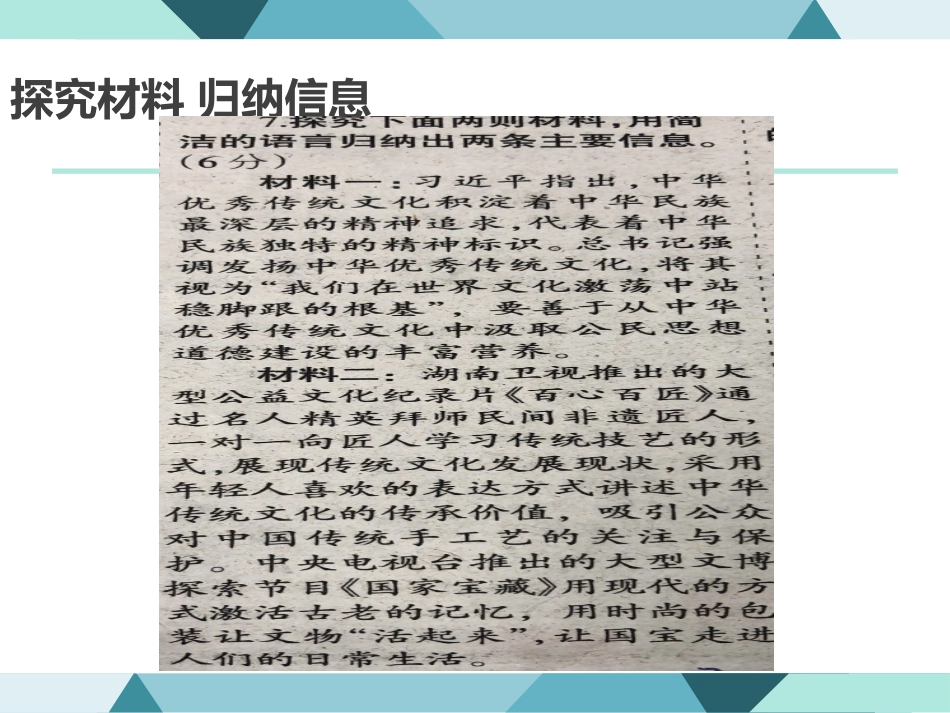 探究材料 归纳信息
7.探究下面两则材料,用简
洁的语言归纳出两条主要信息。
(6分)
材料一:习近平指出,中华
优秀传统文化积淀着中华民族
最深层的精神追求,代表着中华
民族独特的精神标识。总书记强
调发扬中华优秀传统文化,将其
视为“我们在世界文化激荡中站
稳脚跟的根基”,要善于从中华
优秀传统文化中汲取公民思想
道德建设的丰富营养。
材料二:湖南卫视推出的大
型公益文化纪录片《百心百匠》通
过名人精英拜师民间非遗匠人,
一对一向匠人学习传统技艺的形
式,展现传统文化发展现状,采用
年轻人喜欢的表达方式讲述中华
传统文化的传承价值,吸引公众
对中国传统手工艺的关注与保
护。中央电视台推出的大型文博
探索节目《国家宝藏》用现代的方
式激活古老的记忆,用时尚的包
装让文物“活起来”,让国宝走进
人们的日常生活。